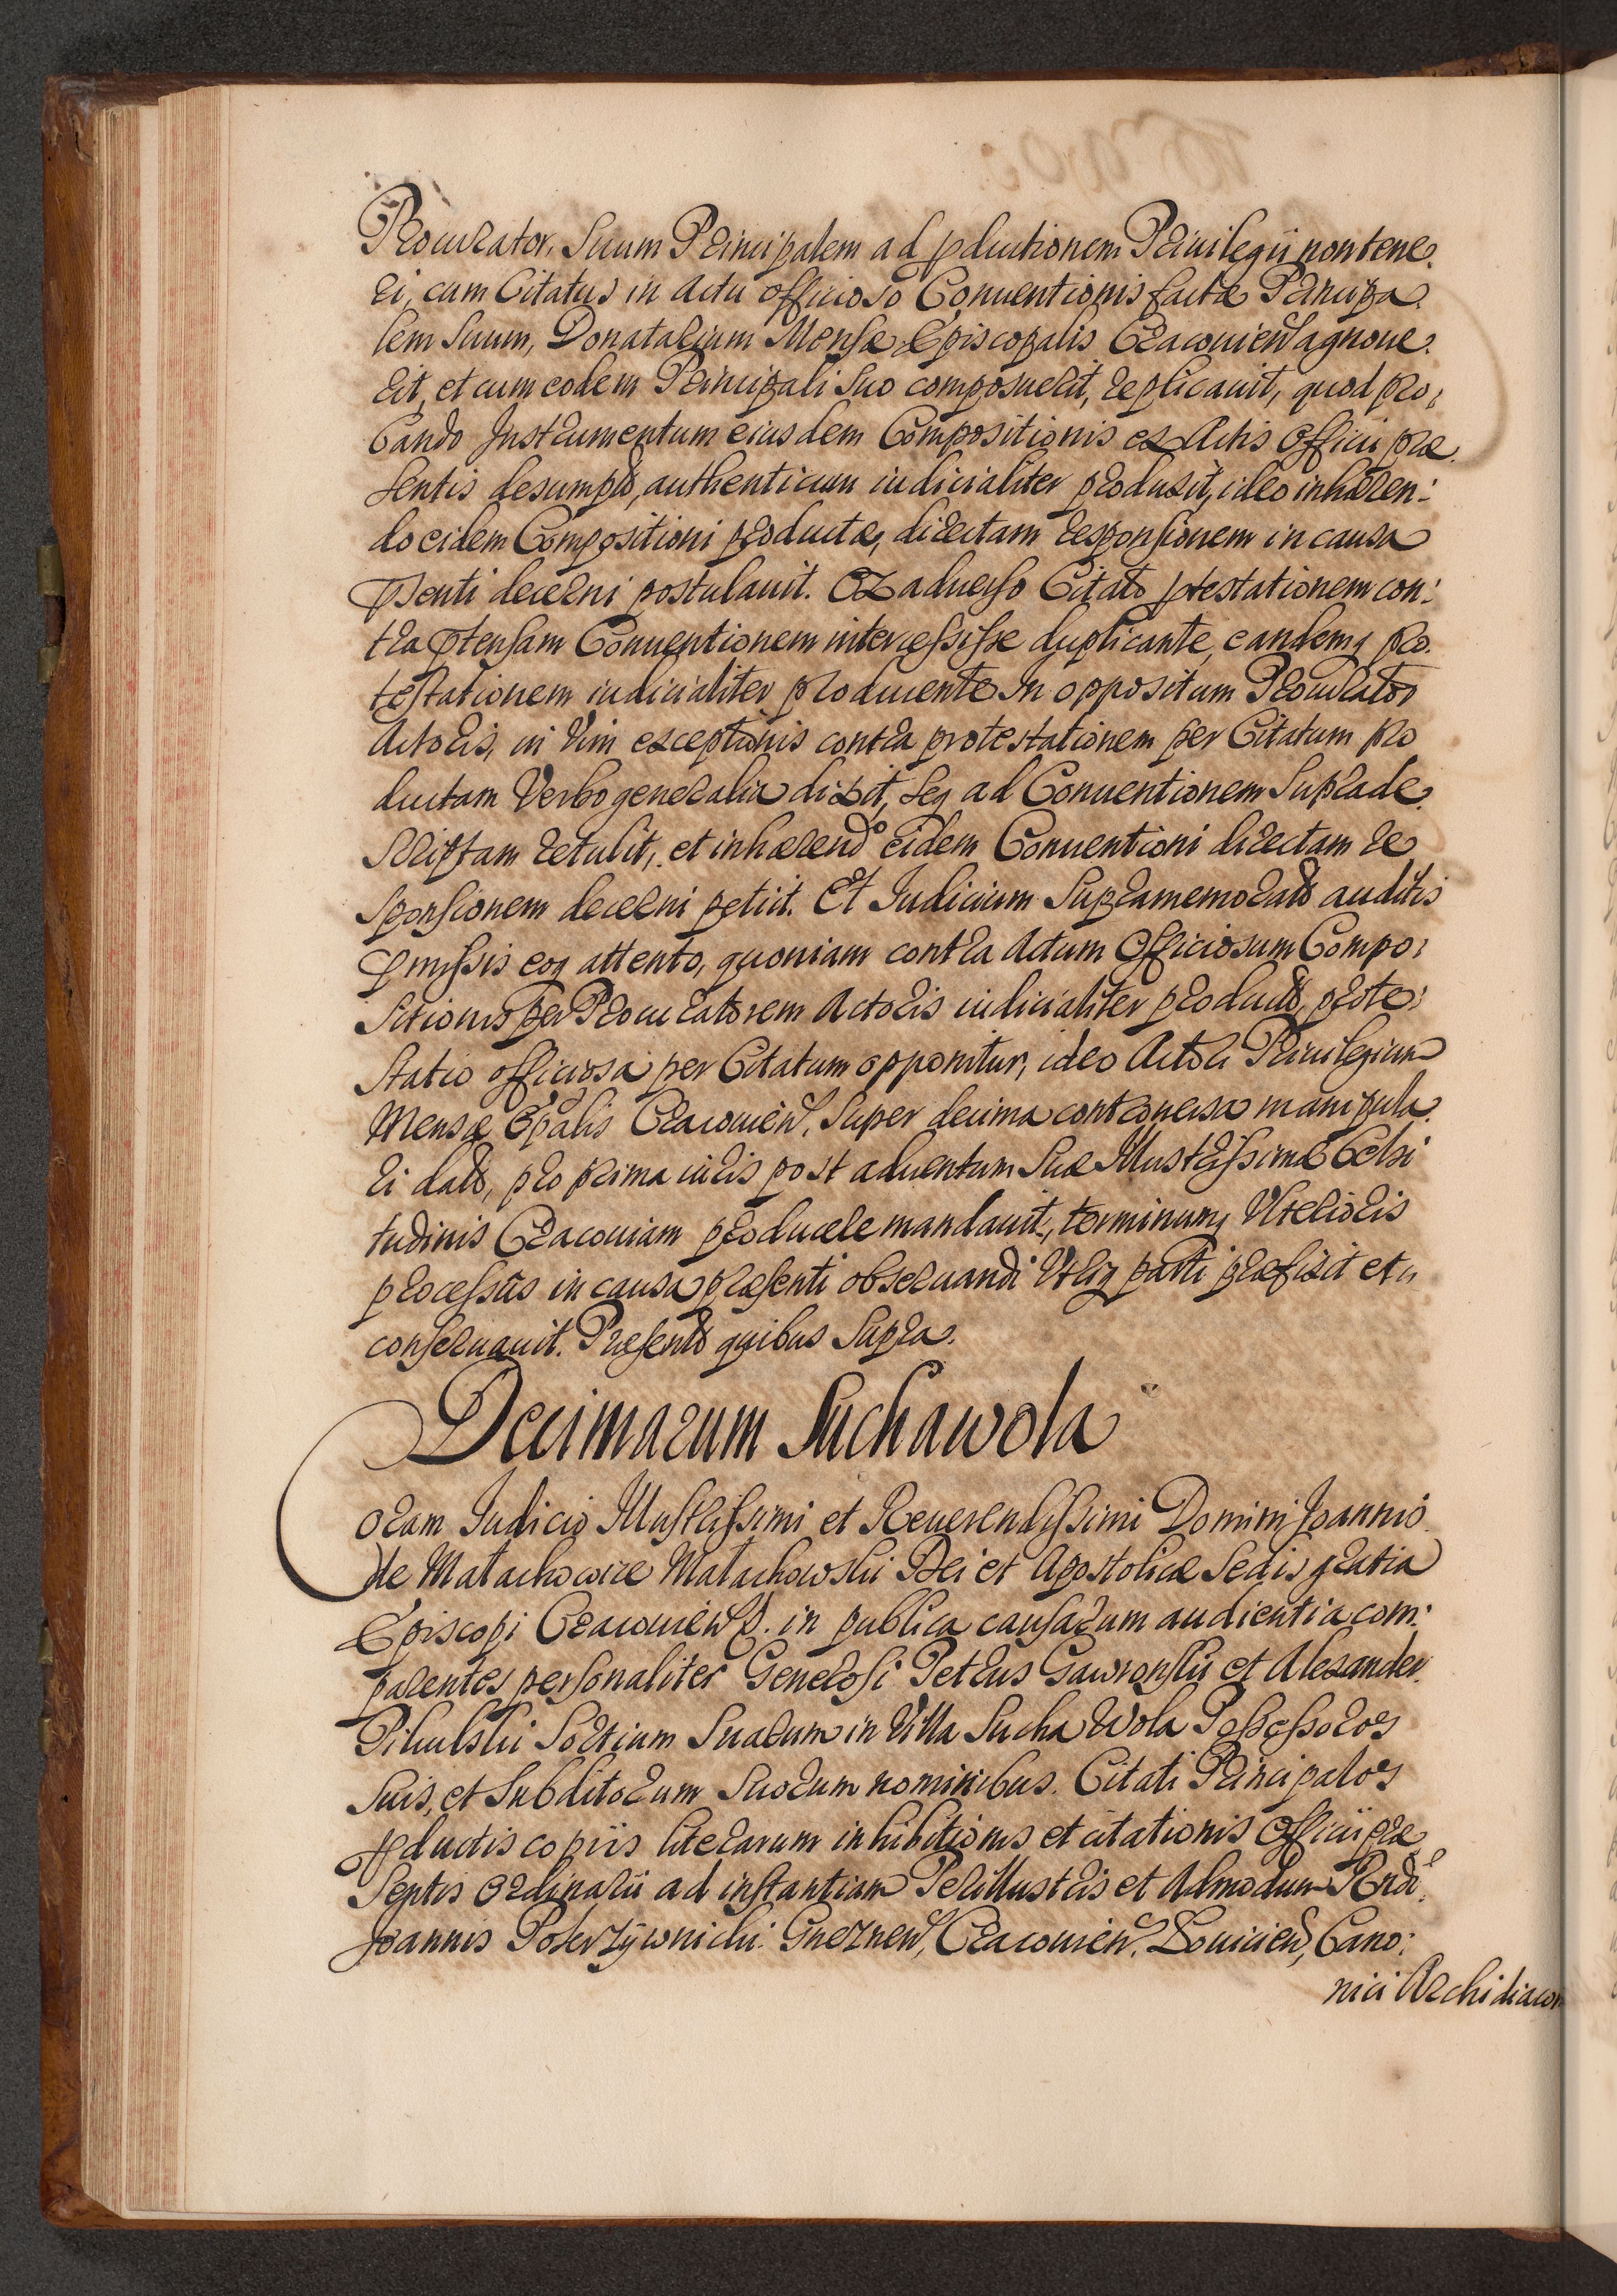 Procurator, Suum Principalem ad pductionem Priuilegii non tene:
ri, cum Citatus in Actu officioso Conuentionis factæ Principa:
lem Suum, Donatarium Mensæ Episcopalis Cracouien agnoue:
rit, et cum eodem Principali Suo composuerit, replicauit, quod pro:
bando Instrumentum eiusdem Compositionis ex Actis Officii præ:
sentis desumpto, authenticum iudicialiter produxit, ideo inhæren:
do eidem Compositioni productæ, directam responsionem in causa
psenti decerni postulauit. Ex aduerso Citato ptestationem con:
tra ptensam Conuentionem intercessisse duplicante, eandemq pro:
testationem iudicialiter producente In oppositum Procurator
Actoris, in Vim exceptionis contra protestationem per Citatum pro
ductam Verbo generalia dixit, seq ad Conuentionem Suprade:
scriptam retulit, et inhærendo eidem Conuentioni directam re
sponsionem decerni petiit. Et Iudicium Supramemorato auditis
pmissis eoq attento, quoniam contra Actum Officiosum Compo:
sitionis per Procuratorem Actoris iudicialiter producto, prote:
statio officiosa per Citatum opponitur, ideo Actori Priuilegium
Mensæ Epalis Cracouien, Super decima controuersa manipula:
ri dato, pro prima iuris post aduentum Suæ Illustrissimæ Celsi
tudinis Cracouiam producere mandauit, terminumq Vlterioris
processus in causa præsenti obseruandi Vtriq parti præfixit et
conseruauit. Præsento quibus Supra.
Decimarum Suchawola
Coram Iudicio Illustrissimi et Reuerendissimi Domini Joannis
de Małachowice Małachowski Dei et Apostolicæ Sedis gratia
Episcopi Cracouien D. in publica causarum audientia com:
parentes personaliter Generosi Petrus Gawronski et Alexander
Pikulski Sortium Suarum in Villa Sucha Wola Possessores
Suis, et Subditorum Suorum nominibus. Citati Principales
pductis copiis literarum inhibitionis et citationis Officii præ
sentis Ordinarii ad instantiam Perillustris et Admodum Rndi
Joannis Pokrzywnicki Gneznen, Cracouien, Louicien, Cano:
nici Archidiacon